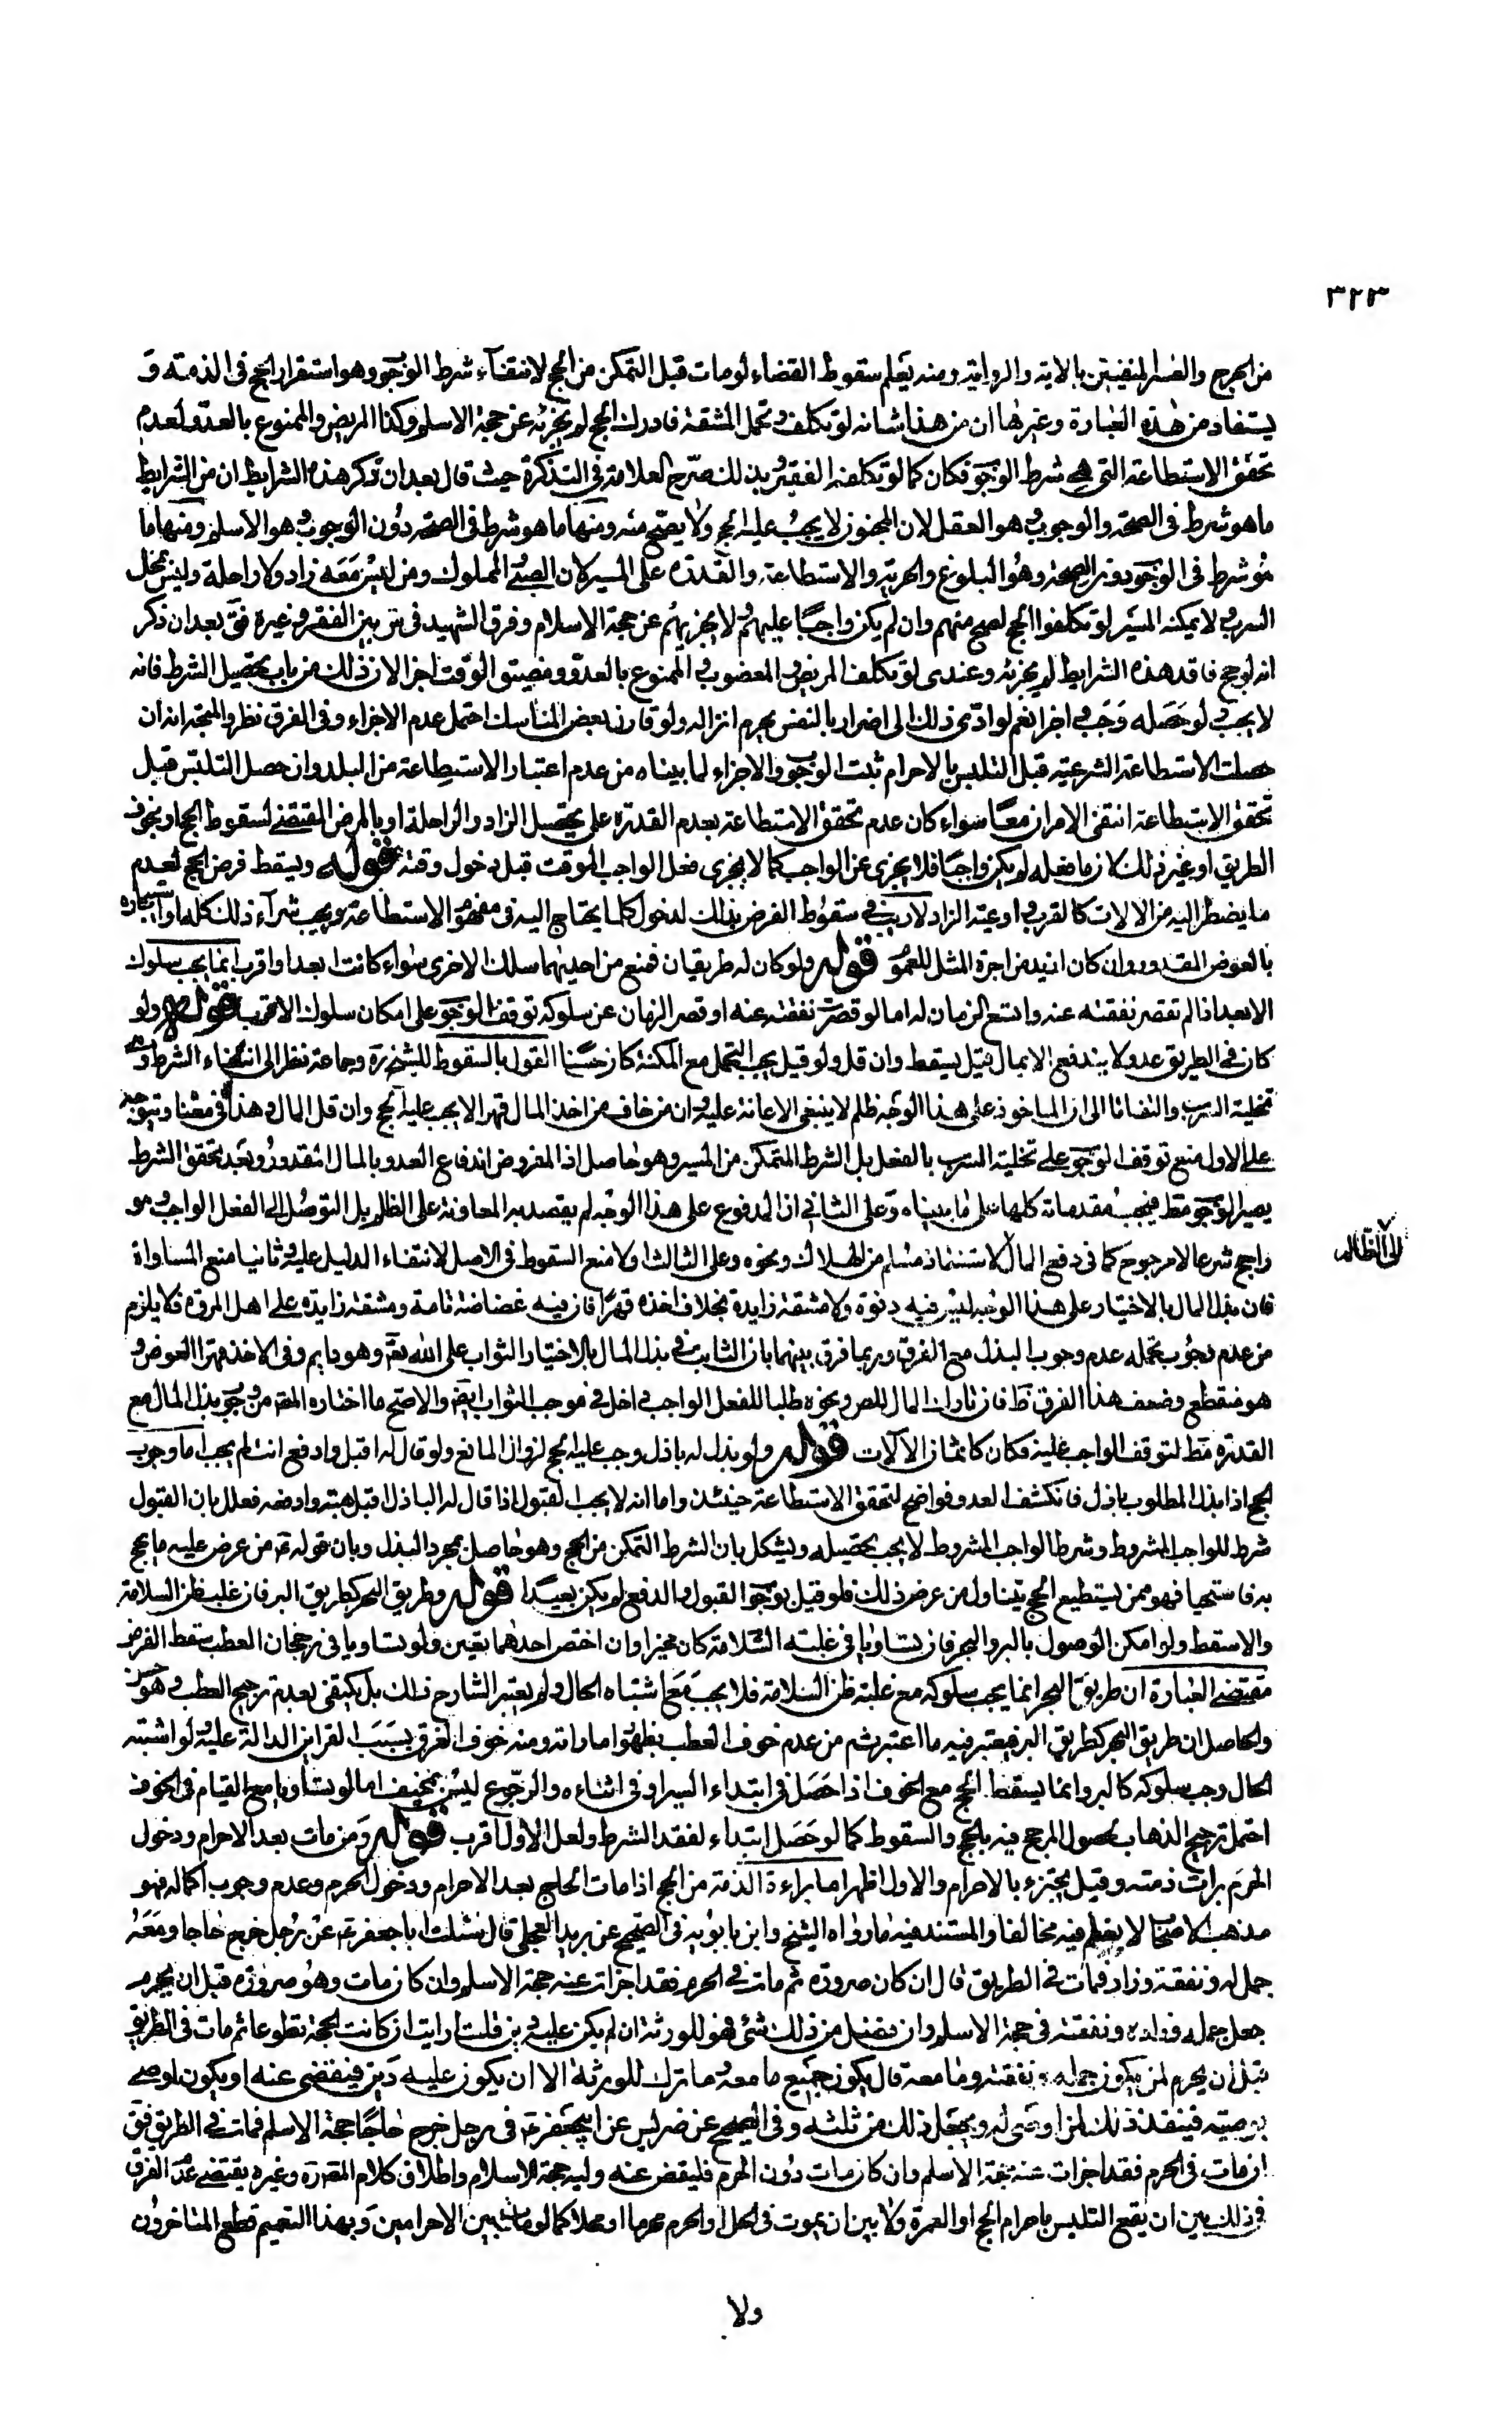 ٣٢٣
من الحرج والضرار المنفيين بالاية والرواية ومنه يعلم سقوط القضاء لو مات قبل التمكن من الحج لانتفاء شرط الوجوب وهو استقرار الحج فى الذمة و
يستفاد من هذه العبارة وغيرها ان من هذا شانه لو تكلف وتحمل المشقة فادرك الحج لم يجزئه عن حجة الاسلم وكذا المريض والممنوع بالعدو لعدم
تحقق الاستطاعة التى هى شرط الوجوب فكان كما لو تكلفه الفقير وبذلك صرح العلامة فى التذكرة حيث قال بعد ان ذكر هذه الشرايط ان من الشرايط
ما هو شرط فى الصحة والوجوب وهو العقل لان المجنون لا يجب عليه الحج ولا يصح منه ومنها ما هو شرط فى الصحة دون الوجوب وهو الاسلم ومنها ما
هو شرط فى الوجوب دون الصحة وهو البلوغ والحرية والاستطاعة والقدرة على المسير لان الصبى والمملوك ومن ليس معه زاد ولا راحلة وليس بمخلى
السرب ولا يمكنه المسير لو تكلفوا الحج لصح منهم وان لم يكن واجبا عليهم ولا يجزيهم عن حجة الاسلام وفرق الشهيد فى س بين الفقر وغيره فق بعد ان ذكر
انه لو حج فاقد هذه الشرايط لم يجزئه وعندى لو تكلف المريض والمعضوب والممنوع بالعدو ومضيق الوقت اجزا لان ذلك من باب تحصيل الشرط فانه
لا يجب ولو حصله وجب واجزا نعم لو ادى ذلك الى اضرار بالنفس يحرم انزاله ولو قارن بعض المناسك احتمل عدم الاجزاء وفى الفرق نظر والمتجه انه ان
حصلت الاستطاعة الشرعية قبل التلبس بالاحرام ثبت الوجوب والاجزاء لما بيناه من عدم اعتبار الاستطاعة من البلد وان حصل التلبس قبل
تحقق الاستطاعة انتفى الامران معا سواء كان عدم تحقق الاستطاعة بعدم القدرة على تحصيل الزاد والراحلة او بالمرض المقتضى لسقوط الحج او بخوف
الطريق او غير ذلك لان ما فعله لم يكن واجبا فلا يجزى عن الواجب كما لا يجزى فعل الواجب الموقت قبل دخول وقته قوله ويسقط فرض الحج لعدم
ما يضطر اليه من الالات كالقرب واوعية الزاد لا ريب فى سقوط الفرض بذلك لدخول كلما يحتاج اليه فى مفهوم الاستطاعة ويجب شراء ذلك كله او استيجاره
بالعوض المقدور وان كان ازيد من اجرة المثل للعموم قوله ولو كان له طريقان فمنع من احديهما سلك الاخرى سواء كانت ابعد او اقرب انما يجب سلوك
الابعد اذا لم تقصر نفقته عنه واتسع الزمان له اما لو قصرت نفقته عنه او قصر الزمان عن سلوكه توقف الوجوب على امكان سلوك الاقرب قوله ولو
كان فى الطريق عدو لا يندفع الا بمال قيل يسقط وان قل ولو قيل يجب التحمل مع المكنة كان حسنا القول بالسقوط للشيخ ره وجماعة نظرا الى انتفاء الشرط وهو
تخلية السرب والتفاتا الى ان الماخوذ على هذا الوجه ظلم لا ينبغى الاعانة عليه وان من خاف من اخذ المال قهرا لا يجب عليه الحج وان قل المال وهذا فى معناه ويتوجه
على الاول منع توقف الوجوب على تخلية السرب بالفعل بل الشرط التمكن من المسير وهو حاصل اذ المفروض اندفاع العدو بالمال المقدور وبعد تحقق الشرط
يصير الوجوب مط فيجب مقدماته كلها على ما بيناه وعلى الثانى ان المدفوع على هذا الوجه لم يقصد به المعاونة على الظلم بل التوصل الى الفعل الواجب فهو
راجح شرعا لا مرجوح كما فى دفع المال لاستنقاذ مسلم من الهلاك ونحوه وعلى الثالث اولا منع السقوط فى الاصل لانتفاء الدليل عليه وثانيا منع المساواة
الى الظالم
فان بذل المال بالاختيار على هذا الوجه ليس فيه ولا مشقة زايدة بخلاف اخذه قهرا فان فيه غضاضة تامة ومشقة زايدة على اهل المروة فلا يلزم
من عدم وجوب تحمله عدم وجوب البذل مع الفرق وربما فرق بينهما بان الثابت فى بذل المال بالاختيار الثواب على الله تعم وهو دايم وفى الاخذ قهرا العوض و
هو منقطع وضعف هذا الفرق ظ فان تارك المال للص ونحوه طلبا للفعل الواجب داخل فى موجب الثواب ايضم والاصح ما اختاره المصم من وجوب بذل المال مع
القدرة مط لتوقف الواجب عليه فكان كاثمان الآلات قوله ولو بذل له باذل وجب عليه الحج لزوال المانع ولو قال له اقبل وادفع انت لم يجب اما وجوب
الحج اذا بذل المطلوب باذل فانكشف العدو فواضح لتحقق الاستطاعة حينئذ واما انه لا يجب القبول اذا قال له الباذل اقبل هبته وادفعه فعلل بان القبول
شرط للواجب المشروط وشرط الواجب المشروط لا يجب تحصيله ويشكل بان الشرط التمكن من الحج وهو حاصل بمجرد البذل وبان قوله عم من عرض عليه ما يحج
به فاستحيا فهو ممن يستطيع الحج يتناول من عرض ذلك فلو قيل بوجوب القبول والدفع لم يكن بعيدا قوله وطريق البحر كطريق البر فان غلب ظن السلامة
والا سقط ولو امكن الوصول بالبر والبحر فان تساويا فى غلبة السلامة كان مخيرا وان اختص احدهما تعين ولو تساويا فى رجحان العطب سقط الفرض
مقتضى العبارة ان طريق البحر انما يجب سلوكه مع غلبة ظن السلامة فلا يجب مع اشتباه الحال ولم يعتبر الشارح ذلك بل يكتفى بعدم ترجيح العطب وهو حسن
والحاصل ان طريق البحر كطريق البر فيعتبر فيه ما اعتبر ثم من عدم خوف العطب بظهور اماراته ومنه خوف الغرق بسبب القراين الدالة عليه ولو اشتبه
الحال وجب سلوكه كالبر وانما يسقط الحج مع الخوف اذا حصل فى ابتداء السير او فى اثناءه والرجوع ليس بمخيف اما لو تساويا مع القيام فى الخوف
احتمل ترجيح الذهاب لحصول المرجح فيه بالحج والسقوط كما لو حصل ابتداء لفقد الشرط ولعل الاول اقرب قوله ومن مات بعد الاحرام ودخول
الحرم برات ذمته وقيل يجتزء بالاحرام والاول اظهر اما براءة الذمة من الحج اذا مات الحاج بعد الاحرام ودخول الحرم وعدم وجوب اكماله فهو
مذهب الاصحاب لا يعلم فيه مخالفا والمستند فيه ما رواه الشيخ وابن بابويه فى الصحيح عن بريد العجلى قال سئلت ابا جعفر عم عن رجل خرج حاجا ومعه
جمل له ونفقة وزاد فمات فى الطريق قال ان كان صرورة ثم مات فى الحرم فقد اجزات عنه حجة الاسلم وان كان مات وهو صرورة قبل ان يحرم
جعل جمله وزاده ونفقته فى حجة الاسلم وان فضل من ذلك شئ فهو للورثة ان لم يكن عليه دين قلت ارايت ان كانت الحجة تطوعا ثم مات فى الطريق
قبل ان يحرم لمن يكون جمله ونفقته وما معه قال يكون جميع ما معه وما ترك للورثة الا ان يكون عليه دين فيقضى عنه او يكون اوصى
بوصية فينفذ ذلك لمن اوصى له ويجعل ذلك من ثلثه وفى الصحيح عن ضريس عن ابيجعفر عم فى رجل خرج حاجا حجة الاسلم فمات فى الطريق فق
ان مات فى الحرم فقد اجزات عنه حجة الاسلم وان كان مات دون الحرم فليقض عنه وليه حجة الاسلام واطلاق كلام المصم ره وغيره يقتضى عدم الفرق
فى ذلك بين ان يقع التلبس باحرام الحج او العمرة ولا بين ان يموت فى الحل او الحرم محرما او محلا كما لو مات بين الاحرامين وبهذا التعميم قطع المتاخرون
ولا